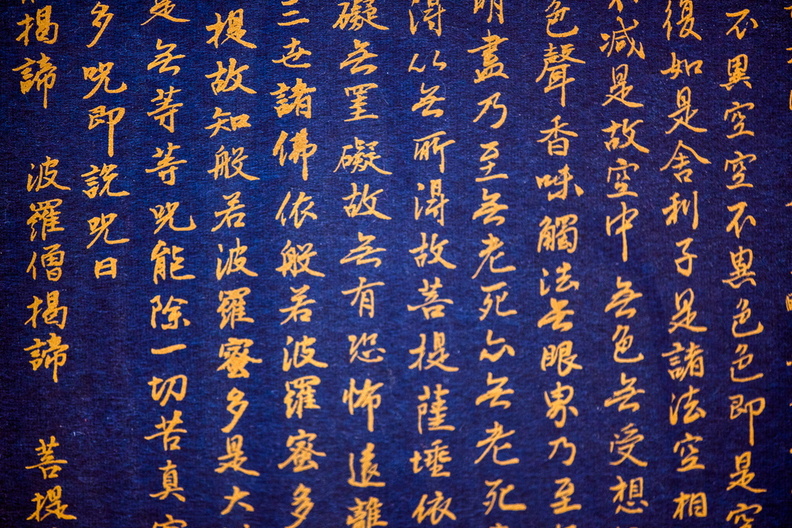 不異空空不異色色即是空
復如是舍利子是諸法空相
不减是故空中無色無受想
色聲香味觸法無眼界乃至
明盡乃至無老死亦無老死
得以無所得故菩提薩埵依
礙無罣礙故無有恐怖遠離
三世諸佛依般若波羅蜜多
提故知般若波羅蜜多是大
是無等等咒能除一切苦真
多咒即說咒曰
揭諦 波羅僧揭諦 菩提